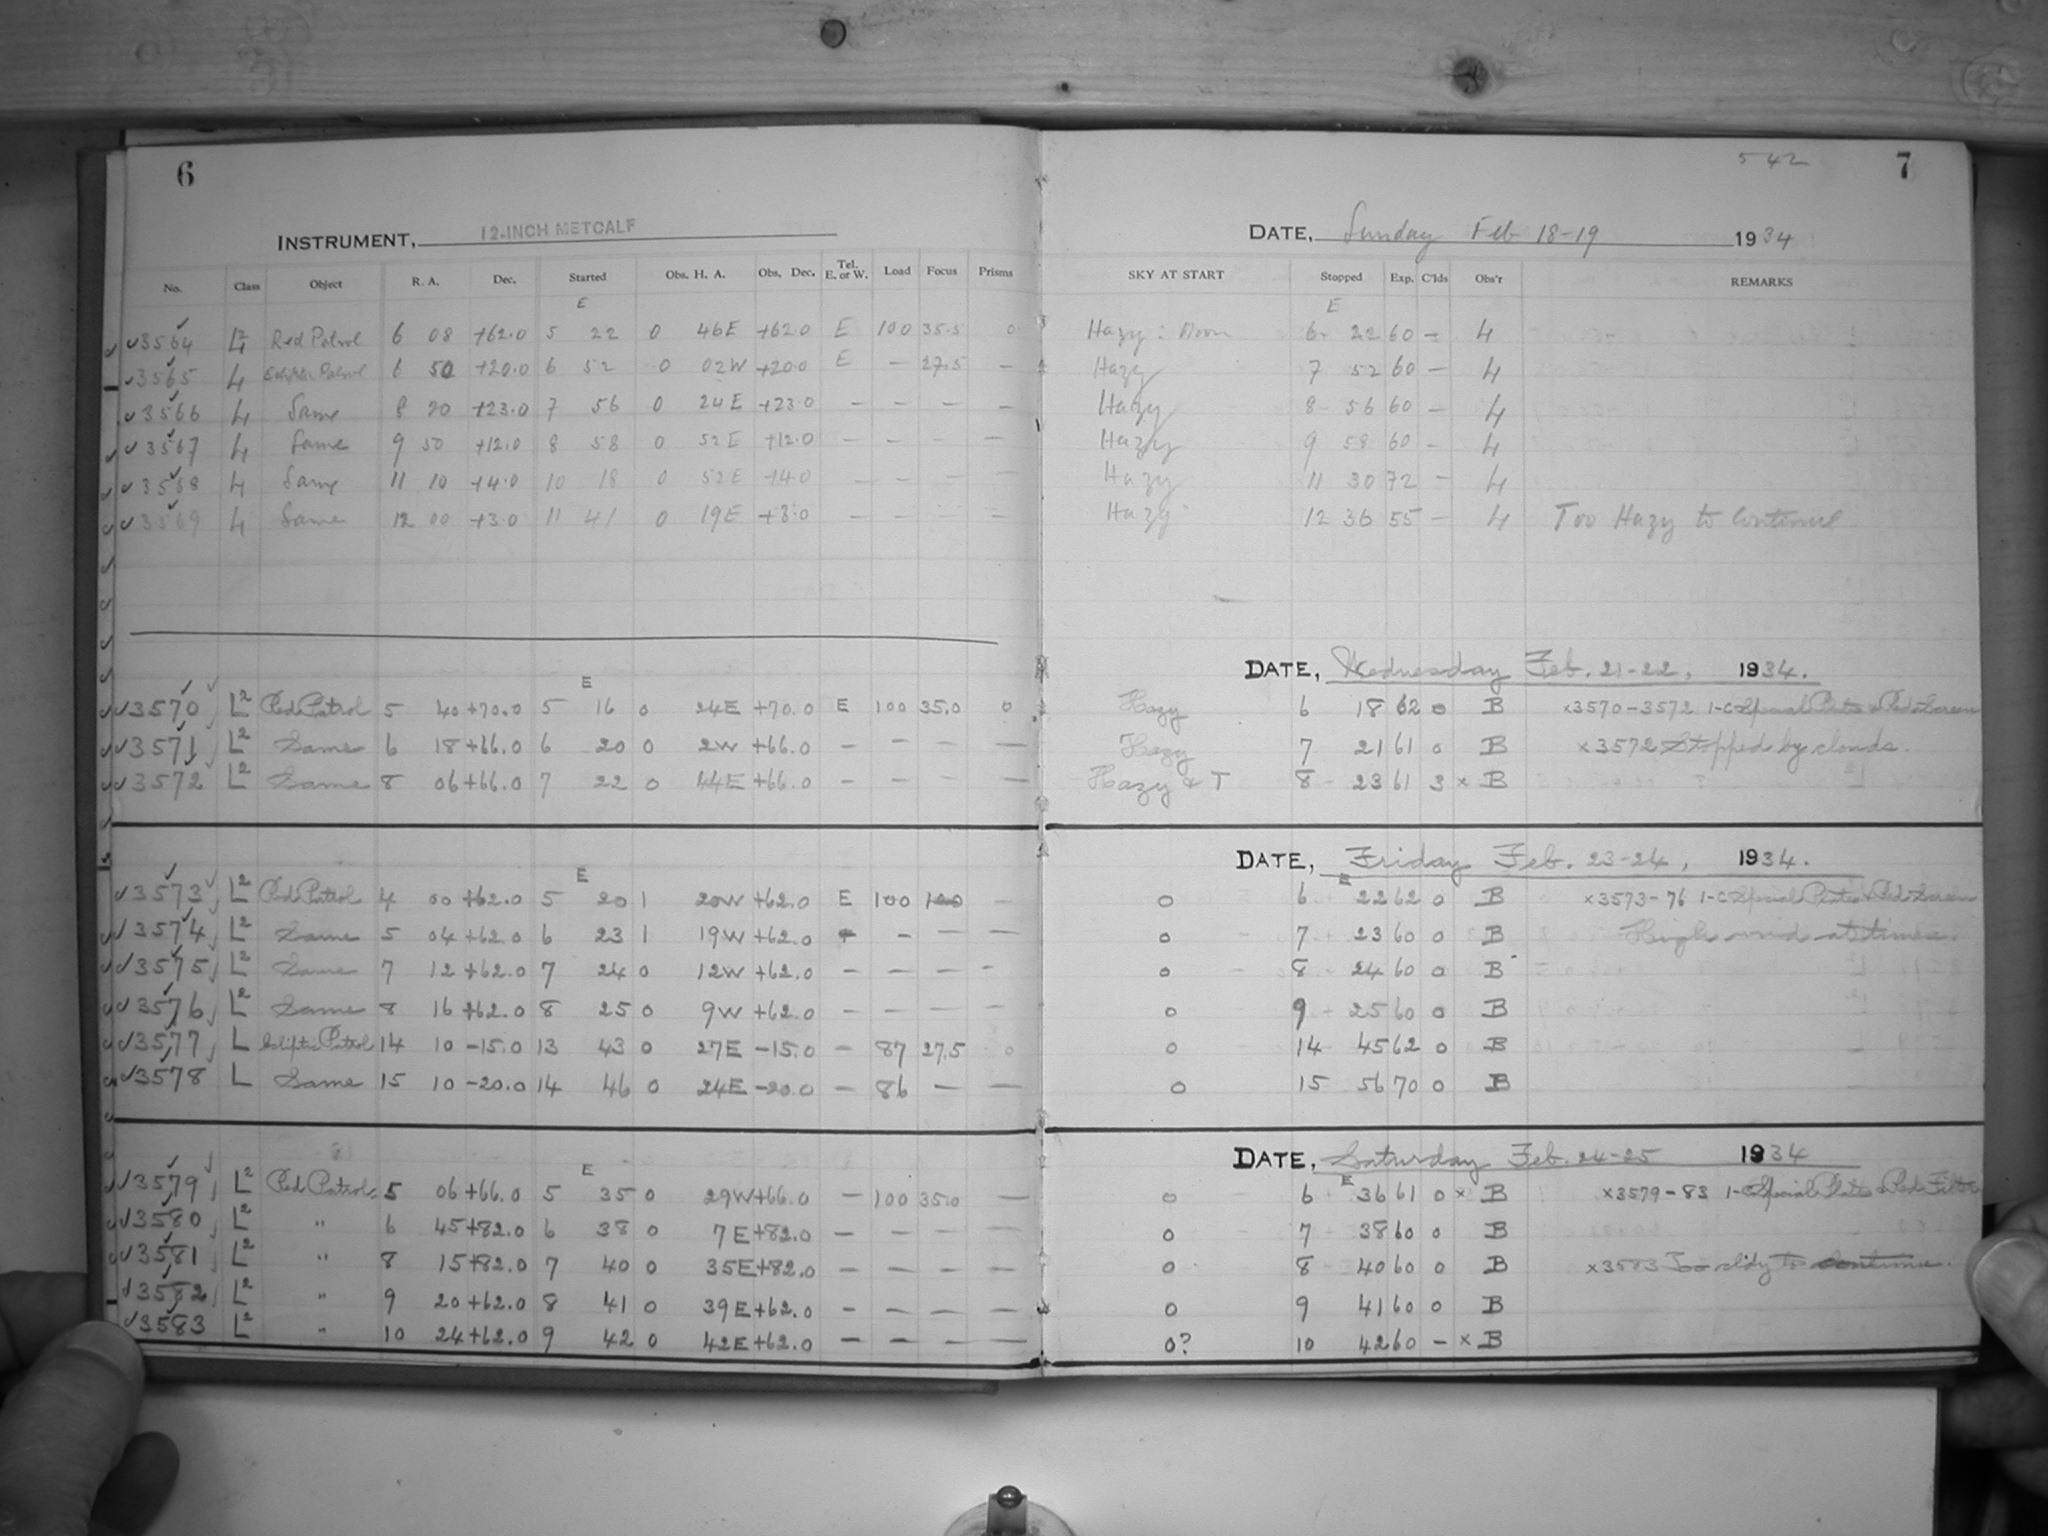 6
INSTRUMENT, 12-INCH METCALF
No. Class Object R. A. Dec. Started Obs. H. A. Obs. Dec. Tel. E. or W. Load Focus Prisms
E
3564 L2 Red Patrol 6 08 +62.0 5 22 0 46E +62.0 E 100 35.5 0
3565 L Ecliptic Patrol 6 50 +20.0 6 52 0 02W +20.0 E — 27.5 —
3566 L Same 8 20 +23.0 7 56 0 24E +23.0 — — — —
3567 L Same 9 50 +12.0 8 58 0 52E +12.0 — — — —
3568 L Same 11 10 +4.0 10 18 0 52E +4.0 — — — —
3569 L Same 12 00 +3.0 11 41 0 19E +3.0 — — — —
E
3570 L2 Red Patrol 5 40 +70.0 5 16 0 24E +70.0 E 100 35.0 0
3571 L2 Same 6 18 +66.0 6 20 0 2W +66.0 — — — —
3572 L2 Same 8 06 +66.0 7 22 0 44E +66.0 — — — —
E
3573 L2 Red Patrol 4 00 +62.0 5 20 1 20W +62.0 E 100 —
3574 L2 Same 5 04 +62.0 6 23 1 19W +62.0 — — — —
3575 L2 Same 7 12 +62.0 7 24 0 12W +62.0 — — — —
3576 L2 Same 8 16 +62.0 8 25 0 9W +62.0 — — — —
3577 L Ecliptic Patrol 14 10 -15.0 13 43 0 27E -15.0 — 87 27.5 0
3578 L Same 15 10 -20.0 14 46 0 24E -20.0 — 86 — —
E
3579 L2 Red Patrol 5 06 +66.0 5 35 0 29W +66.0 — 100 35.0 —
3580 L2 " 6 45 +82.0 6 38 0 7E +82.0 — — — —
3581 L2 " 8 15 +82.0 7 40 0 35E +82.0 — — — —
3582 L2 " 9 20 +62.0 8 41 0 39E +62.0 — — — —
3583 L2 " 10 24 +62.0 9 42 0 42E +62.0 — — — —
542
7
DATE, Sunday Feb 18-19 1934
SKY AT START Stopped Exp. C'lds Obs'r REMARKS
E
Hazy: Moon 6 22 60 — 4
Hazy 7 52 60 — 4
Hazy 8 56 60 — 4
Hazy 9 58 60 — 4
Hazy 11 30 72 — 4
Hazy 12 36 55 — 4 Too Hazy to Continue
DATE, Wednesday Feb. 21-22, 1934.
Hazy 6 18 62 0 B x3570-3572 1-C Special Plates & Red Screen
Hazy 7 21 61 0 B x3572 Stopped by clouds.
Hazy & T 8 23 61 3 x B
DATE, Friday Feb. 23-24, 1934.
E
0 6 22 62 0 B x3573-76 1-C Special Plates & Red Screen
0 7 23 60 0 B High wind at times.
0 8 24 60 0 B
0 9 25 60 0 B
0 14 45 62 0 B
0 15 56 70 0 B
DATE, Saturday Feb. 24-25 1934
E
0 6 36 61 0 x B x3579-83 1-C Special Plates & Red Filter
0 7 38 60 0 B
0 8 40 60 0 B x3583 Too cldy to continue.
0 9 41 60 0 B
0? 10 42 60 — x B